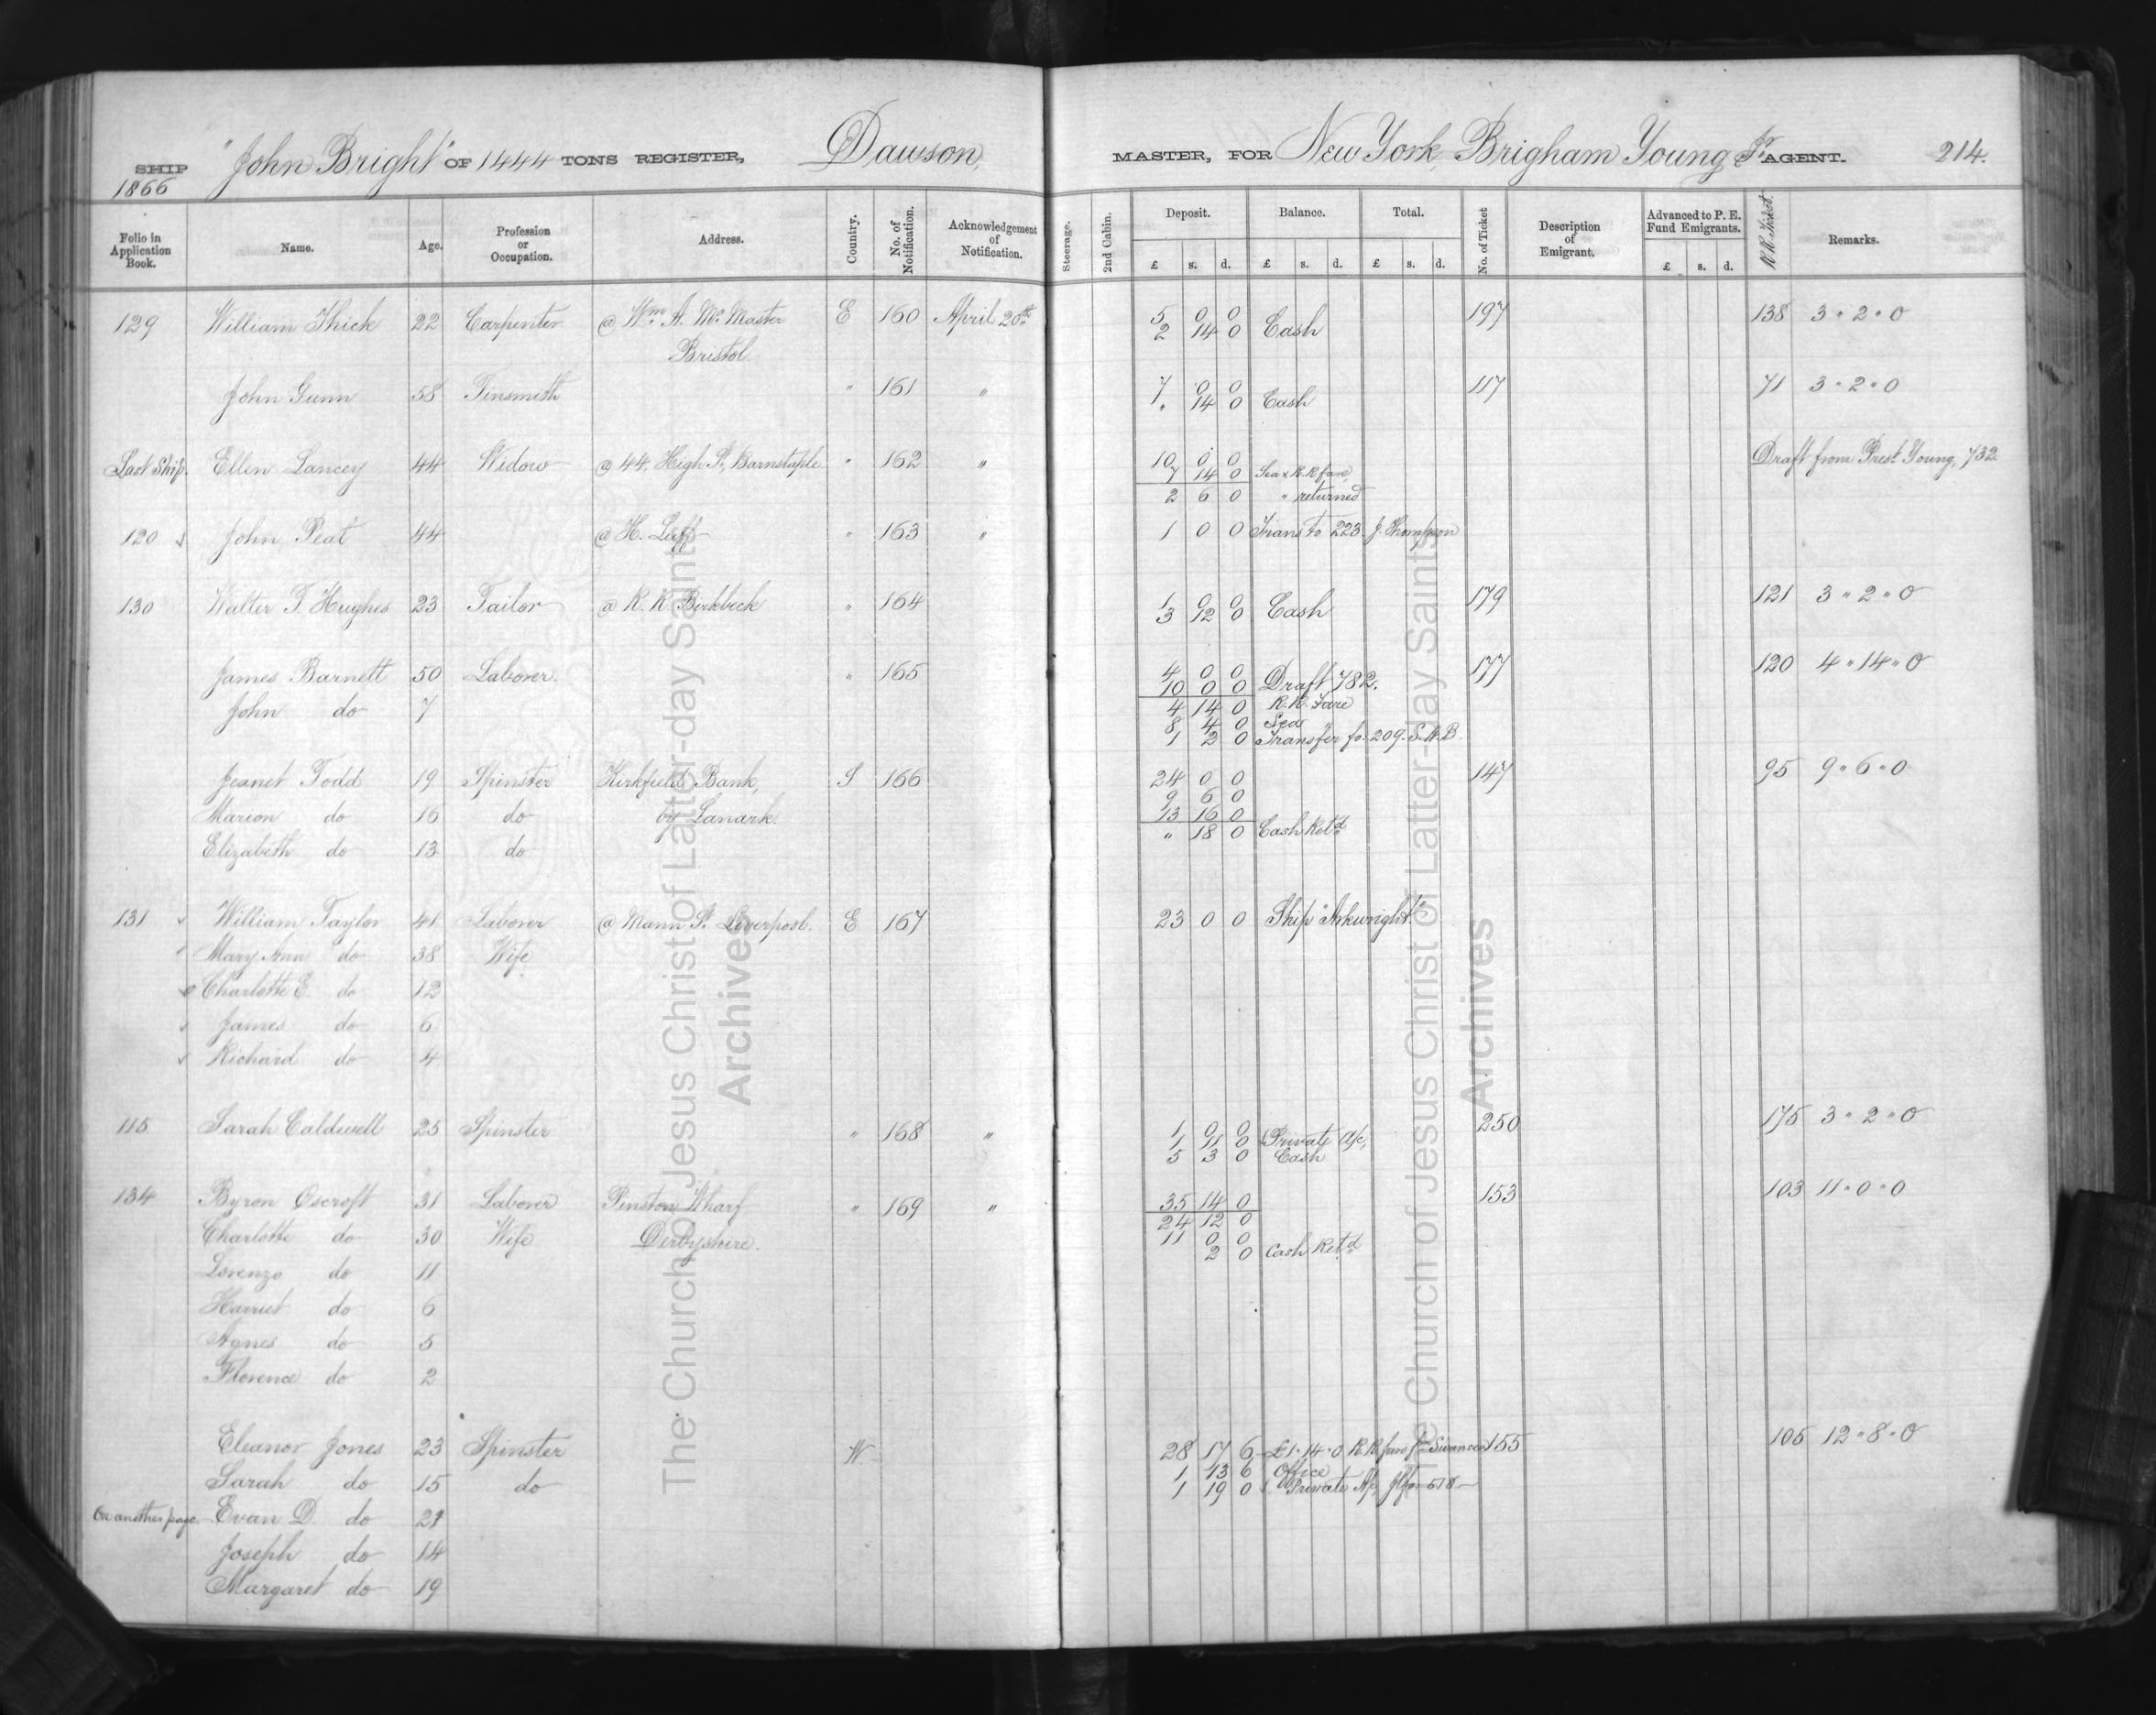 SHIP "John Bright" OF 1444 TONS REGISTER, Dawson, MASTER, FOR New York, Brigham Young Jr. AGENT. 214.
1866
Folio in Application Book. Name. Age. Profession or Occupation. Address. Country. No. of Notification. Acknowledgement of Notification. Steerage. 2nd Cabin. Deposit. Balance. Total. No. of Ticket Description of Emigrant. Advanced to P. E. Fund Emigrants. R R Ticket. Remarks.
£ s. d. £ s. d. £ s. d. £ s. d.
129 William Thick 22 Carpenter @ Wm. A. Mc Master E 160 April 20th 5 0 0 197 138 3 " 2 " 0
2 14 0 Cash
Bristol
John Gunn 58 Tinsmith " 161 " 7 0 0 117 71 3 " 2 " 0
" 14 0 Cash
Last Ship. Ellen Lancey 44 Widow @ 44 High St, Barnstaple " 162 " 10 0 0 Draft from Prest. Young, 732
7 14 0 Sea & R.R fare,
2 6 0 " returned
120 John Peat 44 @ H. Luff " 163 " 1 0 0 Trans to 223. J. Thompson
130 Walter T. Hughes 23 Tailor @ R. R. Birkbeck " 164 1 0 0 179 121 3 " 2 " 0
3 12 0 Cash
James Barnett 50 Laborer. " 165 4 0 0 177 120 4 " 14 " 0
10 0 0 Draft 782.
John do 7 4 14 0 R.R. Fare
8 4 0 Sea "
1 2 0 Transfer fo. 209. S.W.B.
Jeanet Todd 19 Spinster Kirkfield Bank, S 166 24 0 0 147 95 9 " 6 " 0
9 6 0
Marion do 16 do by Lanark. 13 16 0
" 18 0 Cash Retd
Elizabeth do 13 do
131 William Taylor 41 Laborer @ Mann St. Liverpool. E 167 23 0 0 Ship "Arkwright"
Mary Ann do 38 Wife
Charlotte E. do 12
James do 6
Richard do 4
115 Sarah Caldwell 25 Spinster " 168 " 1 0 0 250 175 3 " 2 " 0
1 11 0 Private A/c,
5 3 0 Cash
134 Byron Oscroft 31 Laborer Pinston Wharf " 169 " 35 14 0 153 103 11 " 0 " 0
24 12 0
Charlotte do 30 Wife Derbyshire. 11 0 0
2 0 Cash Retd
Lorenzo do 11
Harriet do 6
Agnes do 5
Florence do 2
Eleanor Jones 23 Spinster W 28 17 6 £1 " 14 " 0 R R fare fm Swansea 155 105 12 " 8 " 0
Sarah do 15 do 1 13 6 Office
1 19 0 Private A/c,
On another page. Evan D. do 21
Joseph do 14
Margaret do 19
The Church of Jesus Christ of Latter-day Saints
Archives
The Church of Jesus Christ of Latter-day Saints
Archives